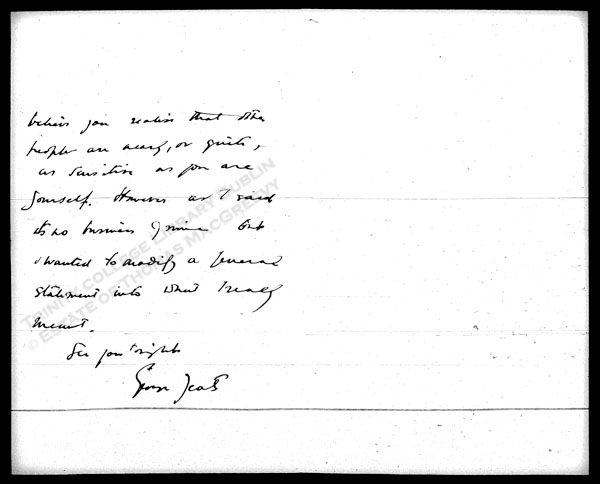 believe you realise that other
people are nearly, or quite,
as sensitive as you are
yourself. However as I said
its no business of mine but
I wanted to modify a general
statement into what I really
meant.
See you tonight
George Yeats
TRINITY COLLEGE LIBRARY DUBLIN
© ESTATE OF THOMAS MACGREEVY